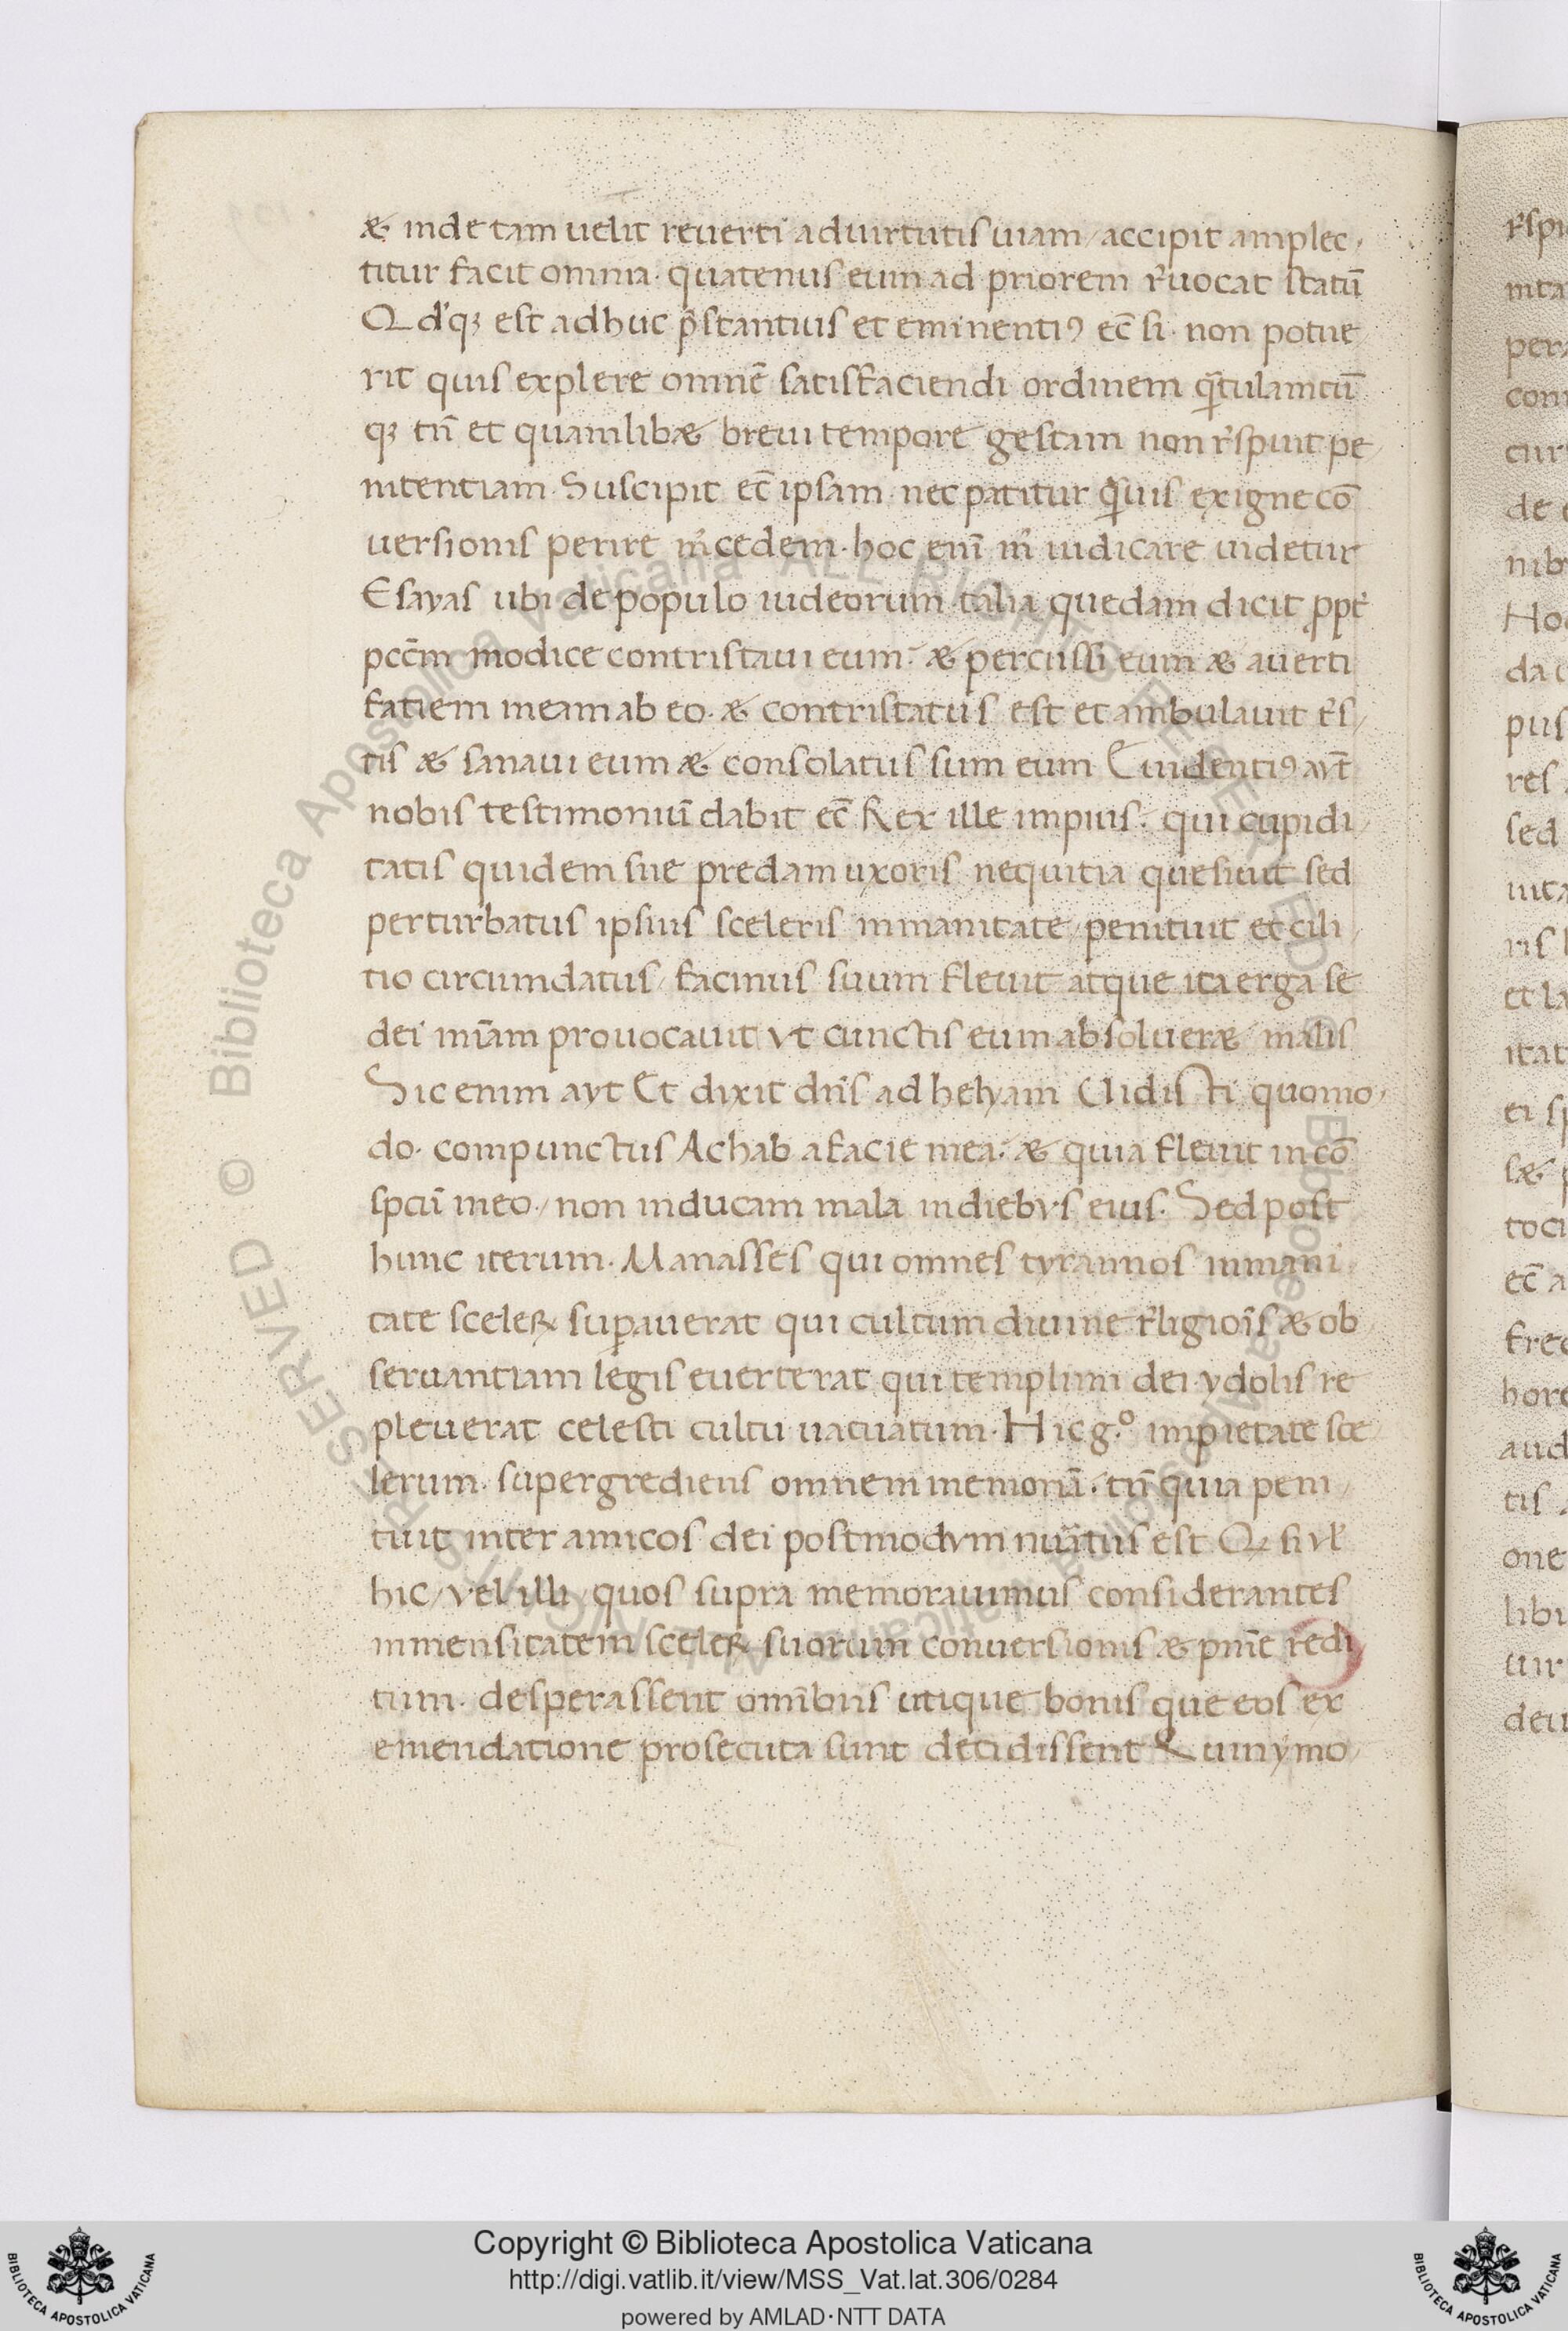 & inde tam uelit reuerti ad uirtutis uiam / accipit amplec,
titur facit omnia. quatenus eum ad priorem r̕uocat statū
Qd̕qꝫ est adhuc p̄stantius et eminentiꝯ ec̄ si. non potue
rit quis explere omnē satisfaciendi ordinem q̄tulamcū
qꝫ tn̄ et quamlib& breui tempore gestam non r̕spuit pe
nitentiam. Suscipit ec̄ ipsam. nec patitur q̄uis exigne cō
uersionis perire m̕cedem. hoc eni̅ m̕ iudicare uidetur
Esayas ubi de populo iudeorum. talia quedam dicit ppt̕
pcc̄m modice contristaui eum. & percussi eum & auerti
fatiem meam ab eo. & contristatus est et ambulauit r̕s/
tis & sanaui eum & consolatus sum eum Euidentiꝯ ayt̄
nobis testimoniū dabit ec̄ Rex ille impius. qui cupidi/
tatis quidem sue predam uxoris nequitia quesiuit sed
perturbatus ipsius sceleris inmanitate / penituit et cili/
tio circumdatus / facinus suum fleuit atque ita erga se
dei mi̅am prouocauit vt cunctis eum absoluer& malis
Sic enim ayt Et dixit dn̄s ad helyam Uidisti quomo/
do. compunctus Achab a facie mea. & quia fleuit in cō
spc̄ū meo / non inducam mala in diebvs eius. Sed post
hunc iterum. Manasses qui omnes tyrannos inmani/
tate sceleꝝ suꝑauerat qui cultum diuine r̕ligiōis & ob/
seruantiam legis euerterat qui templum dei ydolis re
pleuerat celesti cultu uacuatum. Hic g.º impietate sce
lerum. supergrediens omnem memoriā. tn̄ quia peni/
tuit inter amicos dei postmodvm nūatus est Q̨ si vl̕
hic / vel illi / quos supra memorauimus considerantes
inmensitatem sceleꝝ suorum conuersionis & pnīe redi
tum. desperassent omībus utique bonis que eos ex
emendatione prosecuta sunt decidissent Quinymo/
r̕spu
per
cur
de
nib
Ho
da
pus
res
sed
ris
et la
itat
ei
toci
ec̄ a
fre
hor
aud
tis
one
libu
uir
deu
© Biblioteca Apostolica Vaticana ALL RIGHTS RESERVED © Biblioteca Apostolica Vaticana ALL RIGHTS RESERVED
Copyright © Biblioteca Apostolica Vaticana
http://digi.vatlib.it/view/MSS_Vat.lat.306/0284
powered by AMLAD·NTT DATA
BIBLIOTECA APOSTOLICA VATICANA
BIBLIOTECA APOSTOLICA VATICANA